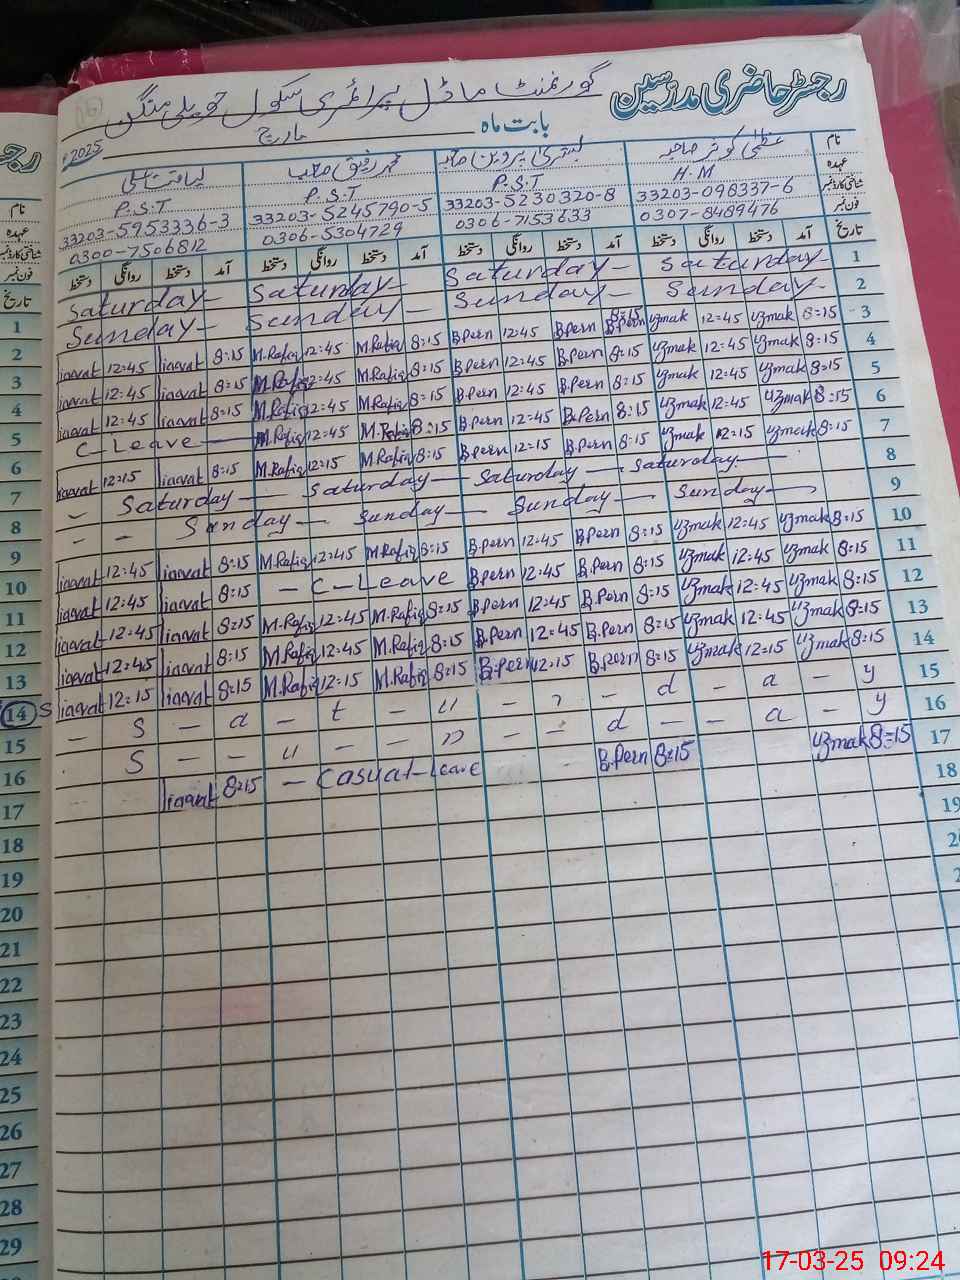 رجسٹر حاضری مدرسین
گورنمنٹ ماڈل پرائمری سکول حویلی منگن
بابت ماہ مارچ 2025
نام عظمیٰ کوثر صاحبہ بشریٰ پروین صاحبہ محمد رفیق صاحب لیاقت علی
عہدہ H.M P.S.T P.S.T P.S.T
شناختی کارڈ نمبر 33203-098337-6 33203-5230320-8 33203-5245790-5 33203-5953336-3
فون نمبر 0307-8489476 0306-7153633 0306-5304729 0300-7506812
تاریخ آمد دستخط روانگی دستخط آمد دستخط روانگی دستخط آمد دستخط روانگی دستخط آمد دستخط روانگی دستخط
Saturday- Saturday- Saturday- Saturday- 1
Sunday- Sunday- Sunday- Sunday- 2
liaqat 12:45 liaqat 8:15 M.Rafiq 12:45 M.Rafiq 8:15 B.Pern 12:45 B.Pern 8:15 uzmak 12:45 uzmak 8:15 3
liaqat 12:45 liaqat 8:15 M.Rafiq 12:45 M.Rafiq 8:15 B.Pern 12:45 B.Pern 8:15 uzmak 12:45 uzmak 8:15 4
liaqat 12:45 liaqat 8:15 M.Rafiq 12:45 M.Rafiq 8:15 B.Pern 12:45 B.Pern 8:15 uzmak 12:45 uzmak 8:15 5
C-Leave- M.Rafiq 12:45 M.Rafiq 8:15 B.Pern 12:45 B.Pern 8:15 uzmak 12:45 uzmak 8:15 6
liaqat 12:15 liaqat 8:15 M.Rafiq 12:15 M.Rafiq 8:15 B.Pern 12:15 B.Pern 8:15 uzmak 12:15 uzmak 8:15 7
- Saturday - Saturday - Saturday - Saturday - 8
- - Sunday - Sunday - Sunday - Sunday - 9
liaqat 12:45 liaqat 8:15 M.Rafiq 12:45 M.Rafiq 8:15 B.Pern 12:45 B.Pern 8:15 uzmak 12:45 uzmak 8:15 10
liaqat 12:45 liaqat 8:15 - C-Leave B.Pern 12:45 B.Pern 8:15 uzmak 12:45 uzmak 8:15 11
liaqat 12:45 liaqat 8:15 M.Rafiq 12:45 M.Rafiq 8:15 B.Pern 12:45 B.Pern 8:15 uzmak 12:45 uzmak 8:15 12
liaqat 12:45 liaqat 8:15 M.Rafiq 12:45 M.Rafiq 8:15 B.Pern 12:45 B.Pern 8:15 uzmak 12:45 uzmak 8:15 13
liaqat 12:15 liaqat 8:15 M.Rafiq 12:15 M.Rafiq 8:15 B.Pern 12:15 B.Pern 8:15 uzmak 12:15 uzmak 8:15 14
- S - a - t - u - r - d - a - y 15
- S - - u - - n - - d - - a - y 16
liaqat 8:15 - Casual-leave B.Pern 8:15 uzmak 8:15 17
18
19
نام
عہدہ
شناختی کارڈ نمبر
فون نمبر
تاریخ
1
2
3
4
5
6
7
8
9
10
11
12
13
14 S
15
16
17
18
19
20
21
22
23
24
25
26
27
28
29
17-03-25 09:24